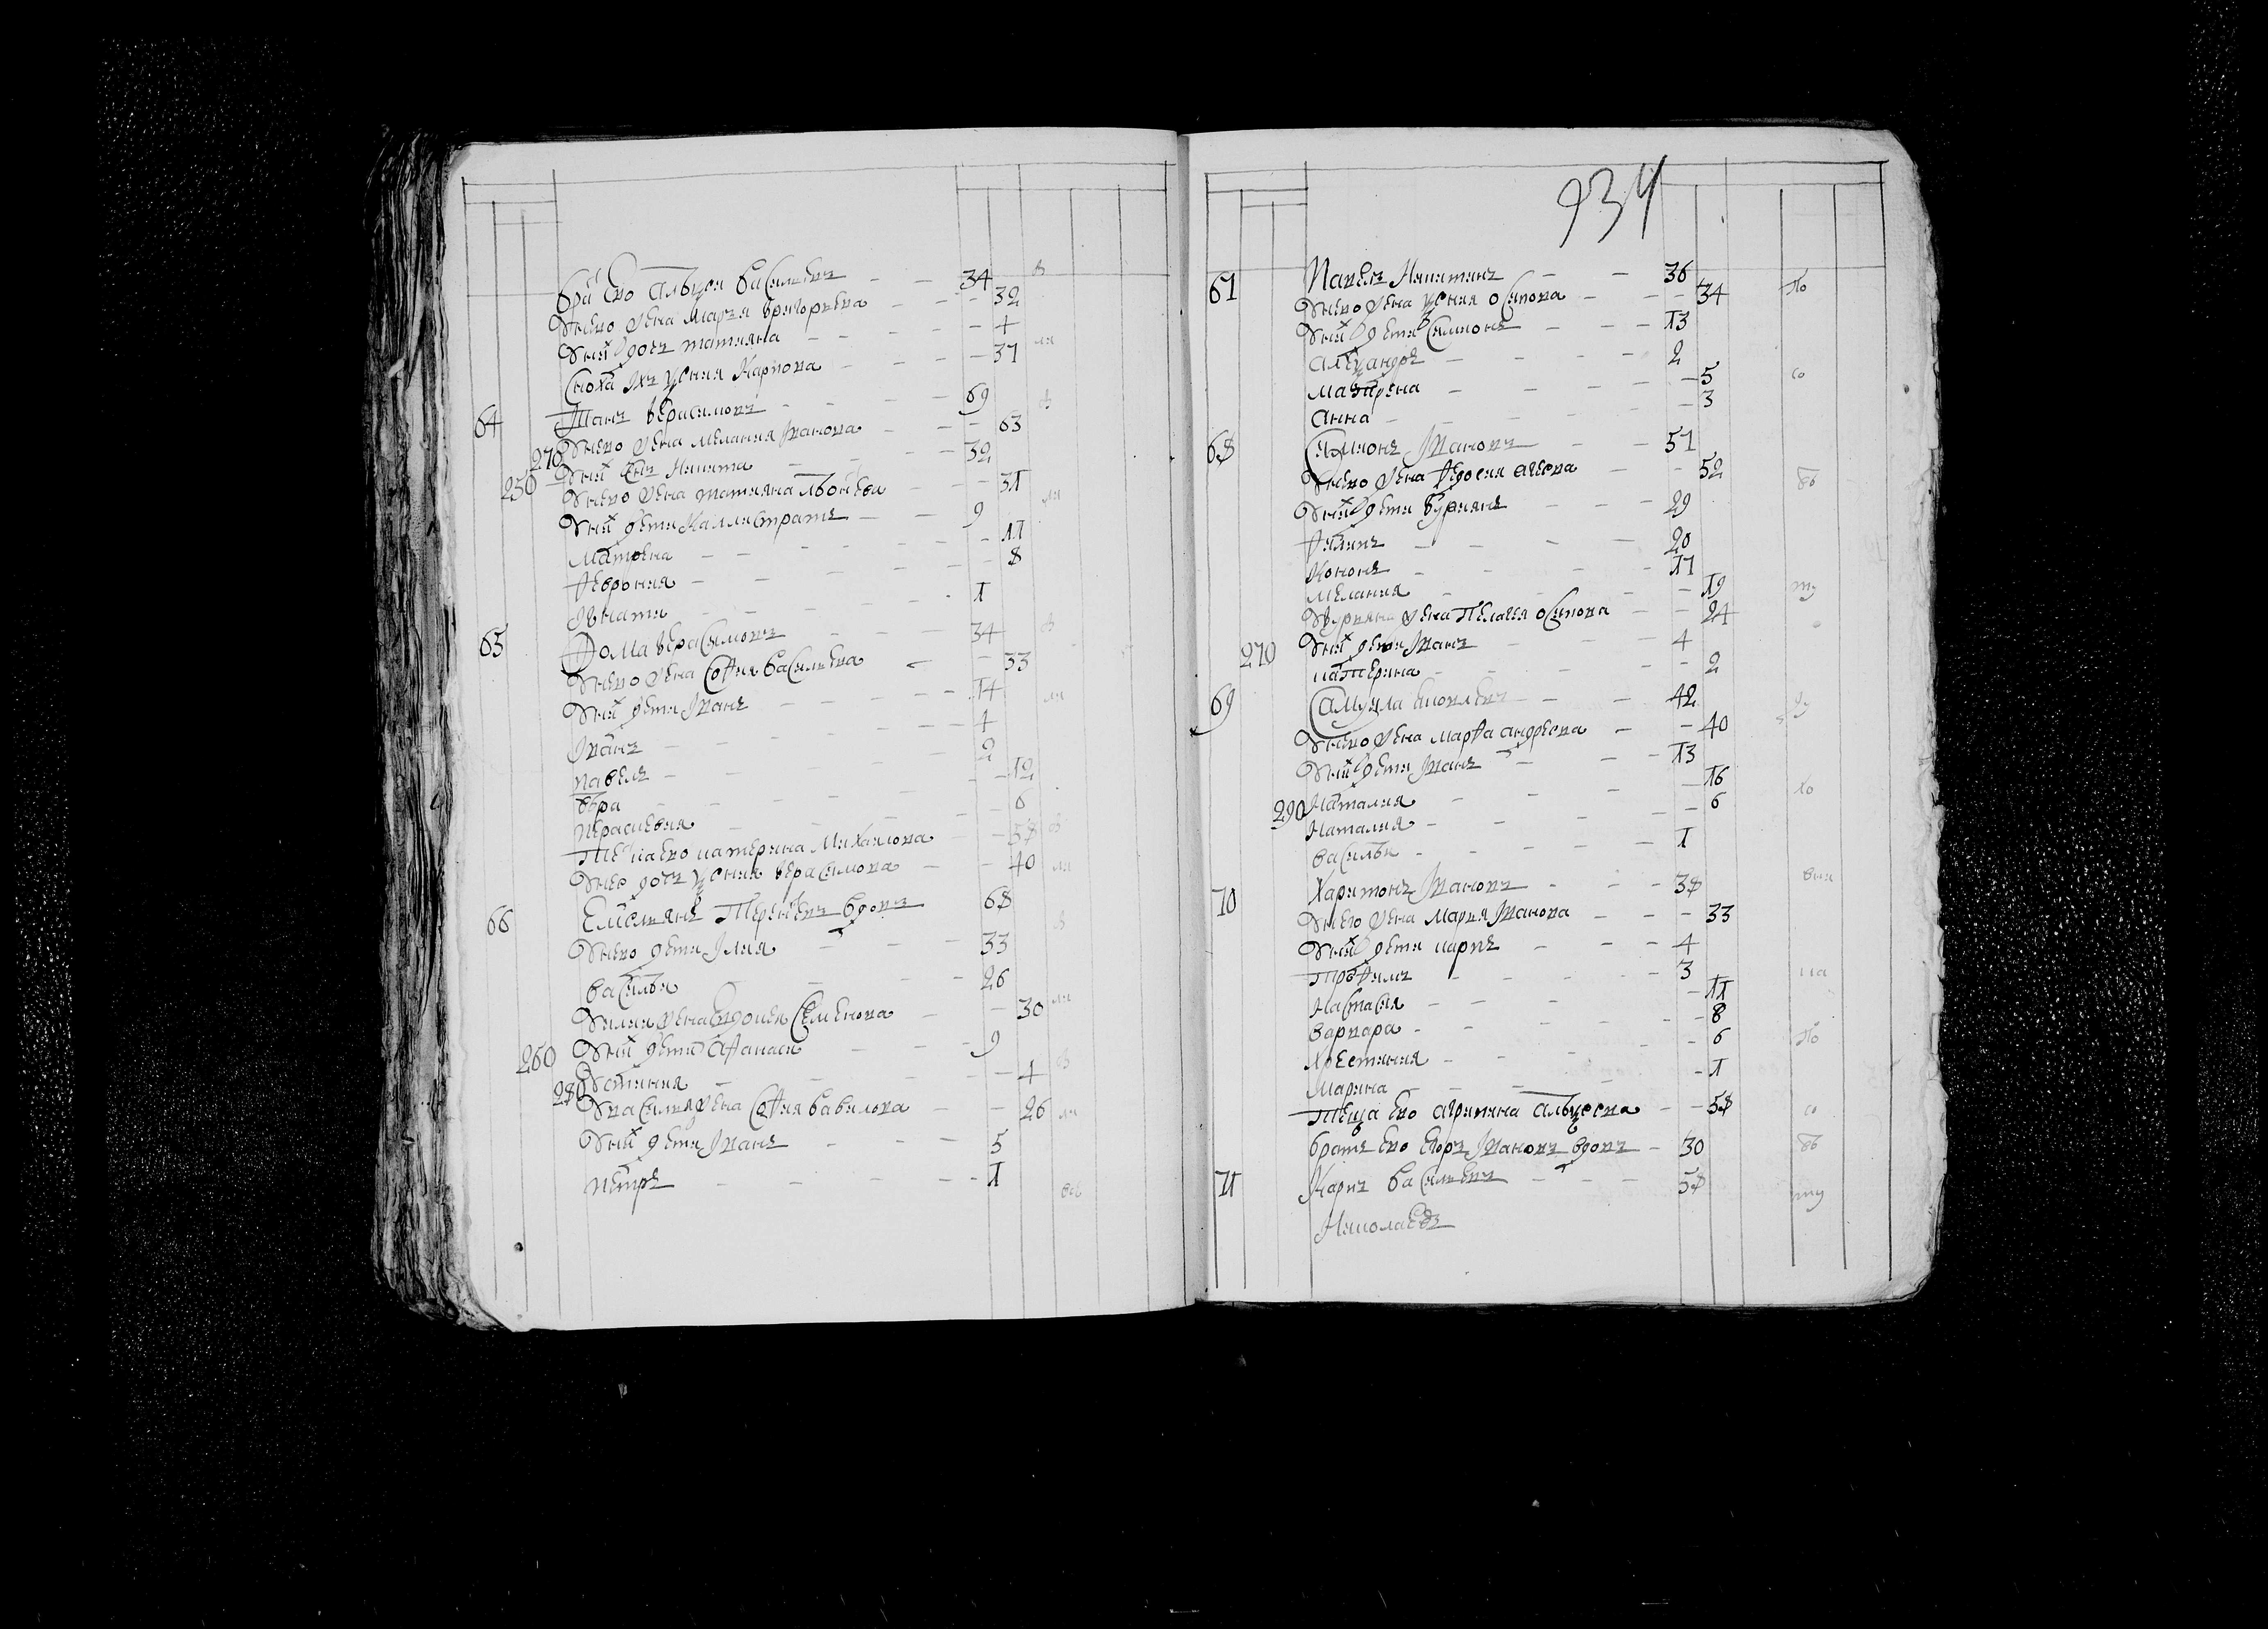 бра ево Алѣѯѣи Василевъ - - 34
Жена ево Марѳа Григорьева - - 32
У них дочь Татияна - - - 4
Сноха их Ѯения Карпова - - - 37
64 Иван Герасимовъ - - - 69
270 Жена ево Мелания Иванова - - 63
У них сынъ Никита - - 32
250 У него жена Татияна - - 31
У них дети Каллистратъ - - 9
Матрена - - - 11
Феврония - - - 8
Игнати - - - 1
65 Фома Герасимовъ - - 34
У него жена София Василева - 33
У них дети Иванъ - - - 14
Иванъ - - - 4
Павелъ - - - 2
- - - 12
Парасковия - - - 6
Теща ево Катерина Михаилова - 58
У нее дочь Ѯения Герасимова - - 40
66 Емельянъ Терентьев вдовъ 68
У него дети Илия - - 33
Василѣи - - - 26
У Илии жена Евдокея Семенова - - 30
260 У них дети Афанаси - - - 9
280 Устиния - - - 4
У Василия жена София Вавилова - - 26
У них дети Иванъ - - - 5
Петръ - - - 1
934
67 Павелъ Никитинъ - - 36
У него жена Ѯения Осипова - - 34
У них дети Симионъ - - - 13
Алеѯандръ - - - 2
Матрена - - - 5
Анна - - - 3
68 Симионъ Ивановъ - - 51
У него жена Федосия - - 52
У них дети Гурианъ - - - 29
Филипъ - - - 20
Кононъ - - - 17
Мелания - - - 19
У Гуриана жена Пелагея Осипова - - 24
270 У них дети Иванъ - - - 4
Катерина - - - 2
69 Самуила Яковлевъ - - 42
У него жена Марфа Андреева - - 40
У них дети Иванъ - - - 13
Наталия - - - 16
290 Наталия - - - 6
Василѣи - - - 1
70 Харитонъ Ивановъ - - - 38
У него жена Мария Иванова - - - 33
У них дети Карпъ - - - 4
Трофимъ - - - 3
Настасия - - - 11
Варвара - - - 8
Христиния - - - 6
Марина - - - 1
Теща ево Агрипина Алѣѯеева - - 58
Братъ ево Егоръ Ивановъ вдовъ - 30
71 Карпъ Василевъ - - - 58
Николаевъ